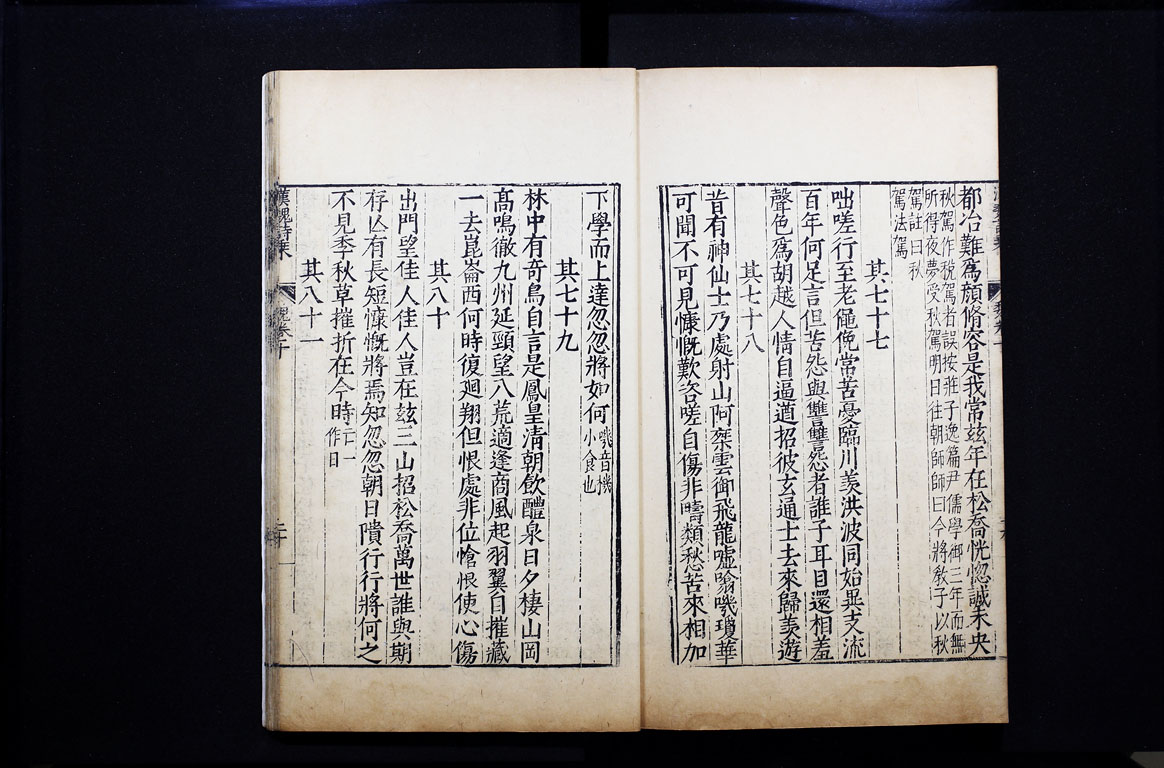 都冶難爲顏脩容是我常玆年在松喬恍惚誠未央
秋駕作稅駕者誤按莊子逸篇尹儒學御三年而無
所得夜夢受秋駕明日往朝師師曰今將教子以秋
駕註曰秋
駕法駕
其七十七
咄嗟行至老僶俛常苦憂臨川羨洪波同始異支流
百年何足言但苦怨與讐讐怨者誰子耳目還相羞
聲色爲胡越人情自逼遒招彼玄通士去來歸羡遊
其七十八
昔有神仙士乃處射山阿椉雲御飛龍嘘噏嘰瓊華
可聞不可見慷慨歎咨嗟自傷非疇類愁苦來相加
下學而上達忽忽將如何嘰音機
小食也
其七十九
林中有奇鳥自言是鳳皇清朝飲醴泉日夕棲山岡
高鳴徹九州延頸望八荒適逢商風起羽翼自摧藏
一去崑崙西何時復廻翔但恨處非位愴悢使心傷
其八十
出門望佳人佳人豈在玆三山招松喬萬世誰與期
存亾有長短慷慨將焉知忽忽朝日隤行行將何之
不見季秋草摧折在今時一云
作日
其八十一
漢魏詩乗
魏卷十
二十一